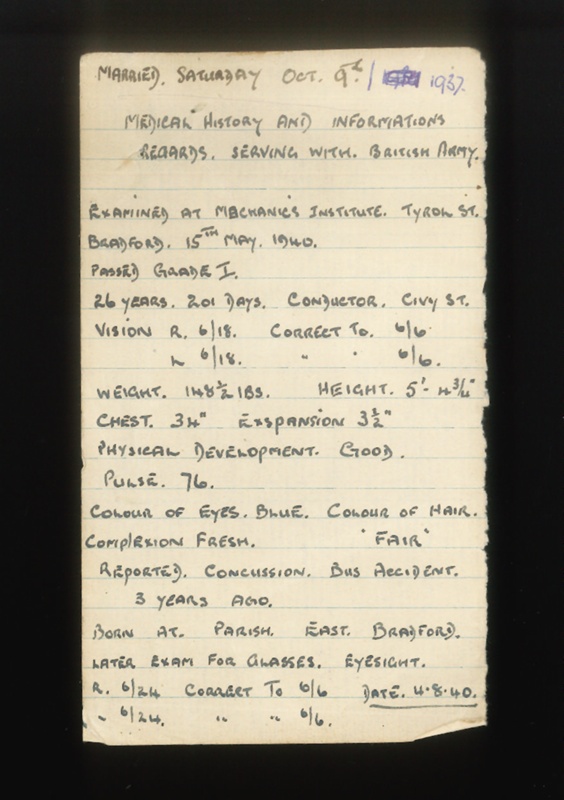 MARRIED. SATURDAY OCT. 9th / 1937.
MEDICAL HISTORY AND INFORMATIONS
REGARDS. SERVING WITH. BRITISH ARMY.
EXAMINED AT MECHANICS INSTITUTE. TYROL ST.
BRADFORD. 15TH MAY. 1940.
PASSED GRADE I.
26 YEARS. 201 DAYS. CONDUCTOR. CIVY ST.
VISION R. 6/18. CORRECT TO. 6/6
L 6/18. " " 6/6.
WEIGHT. 148½ LBS. HEIGHT. 5'- 4¾"
CHEST. 34" EXSPANSION 3½"
PHYSICAL DEVELOPMENT. GOOD.
PULSE. 76.
COLOUR OF EYES. BLUE. COLOUR OF HAIR.
COMPLEXION FRESH. "FAIR"
REPORTED. CONCUSSION. BUS ACCIDENT.
3 YEARS AGO.
BORN AT. PARISH. EAST. BRADFORD.
LATER EXAM FOR GLASSES. EYESIGHT.
R. 6/24 CORRECT TO 6/6 DATE. 4.8.40.
6/24. " " 6/6.